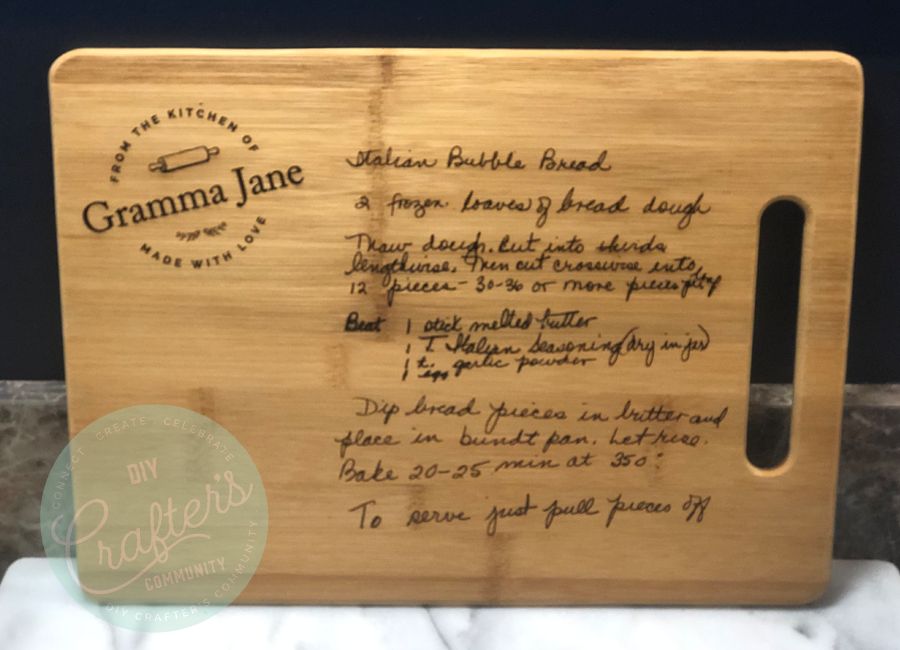 FROM THE KITCHEN OF
Gramma Jane
MADE WITH LOVE
Italian Bubble Bread
2 frozen loaves of bread dough
Thaw dough. Cut into thirds
lengthwise. Then cut crosswise into
12 pieces - 30-36 or more pieces
Beat 1 stick melted butter
1 T. Italian Seasoning (dry in jar)
1 t. garlic powder
1 egg
Dip bread pieces in butter and
place in bundt pan. Let rise.
Bake 20-25 min at 350°
To serve just pull pieces off
CONNECT · CREATE · CELEBRATE
DIY
Crafter's
COMMUNITY
DIY CRAFTER'S COMMUNITY